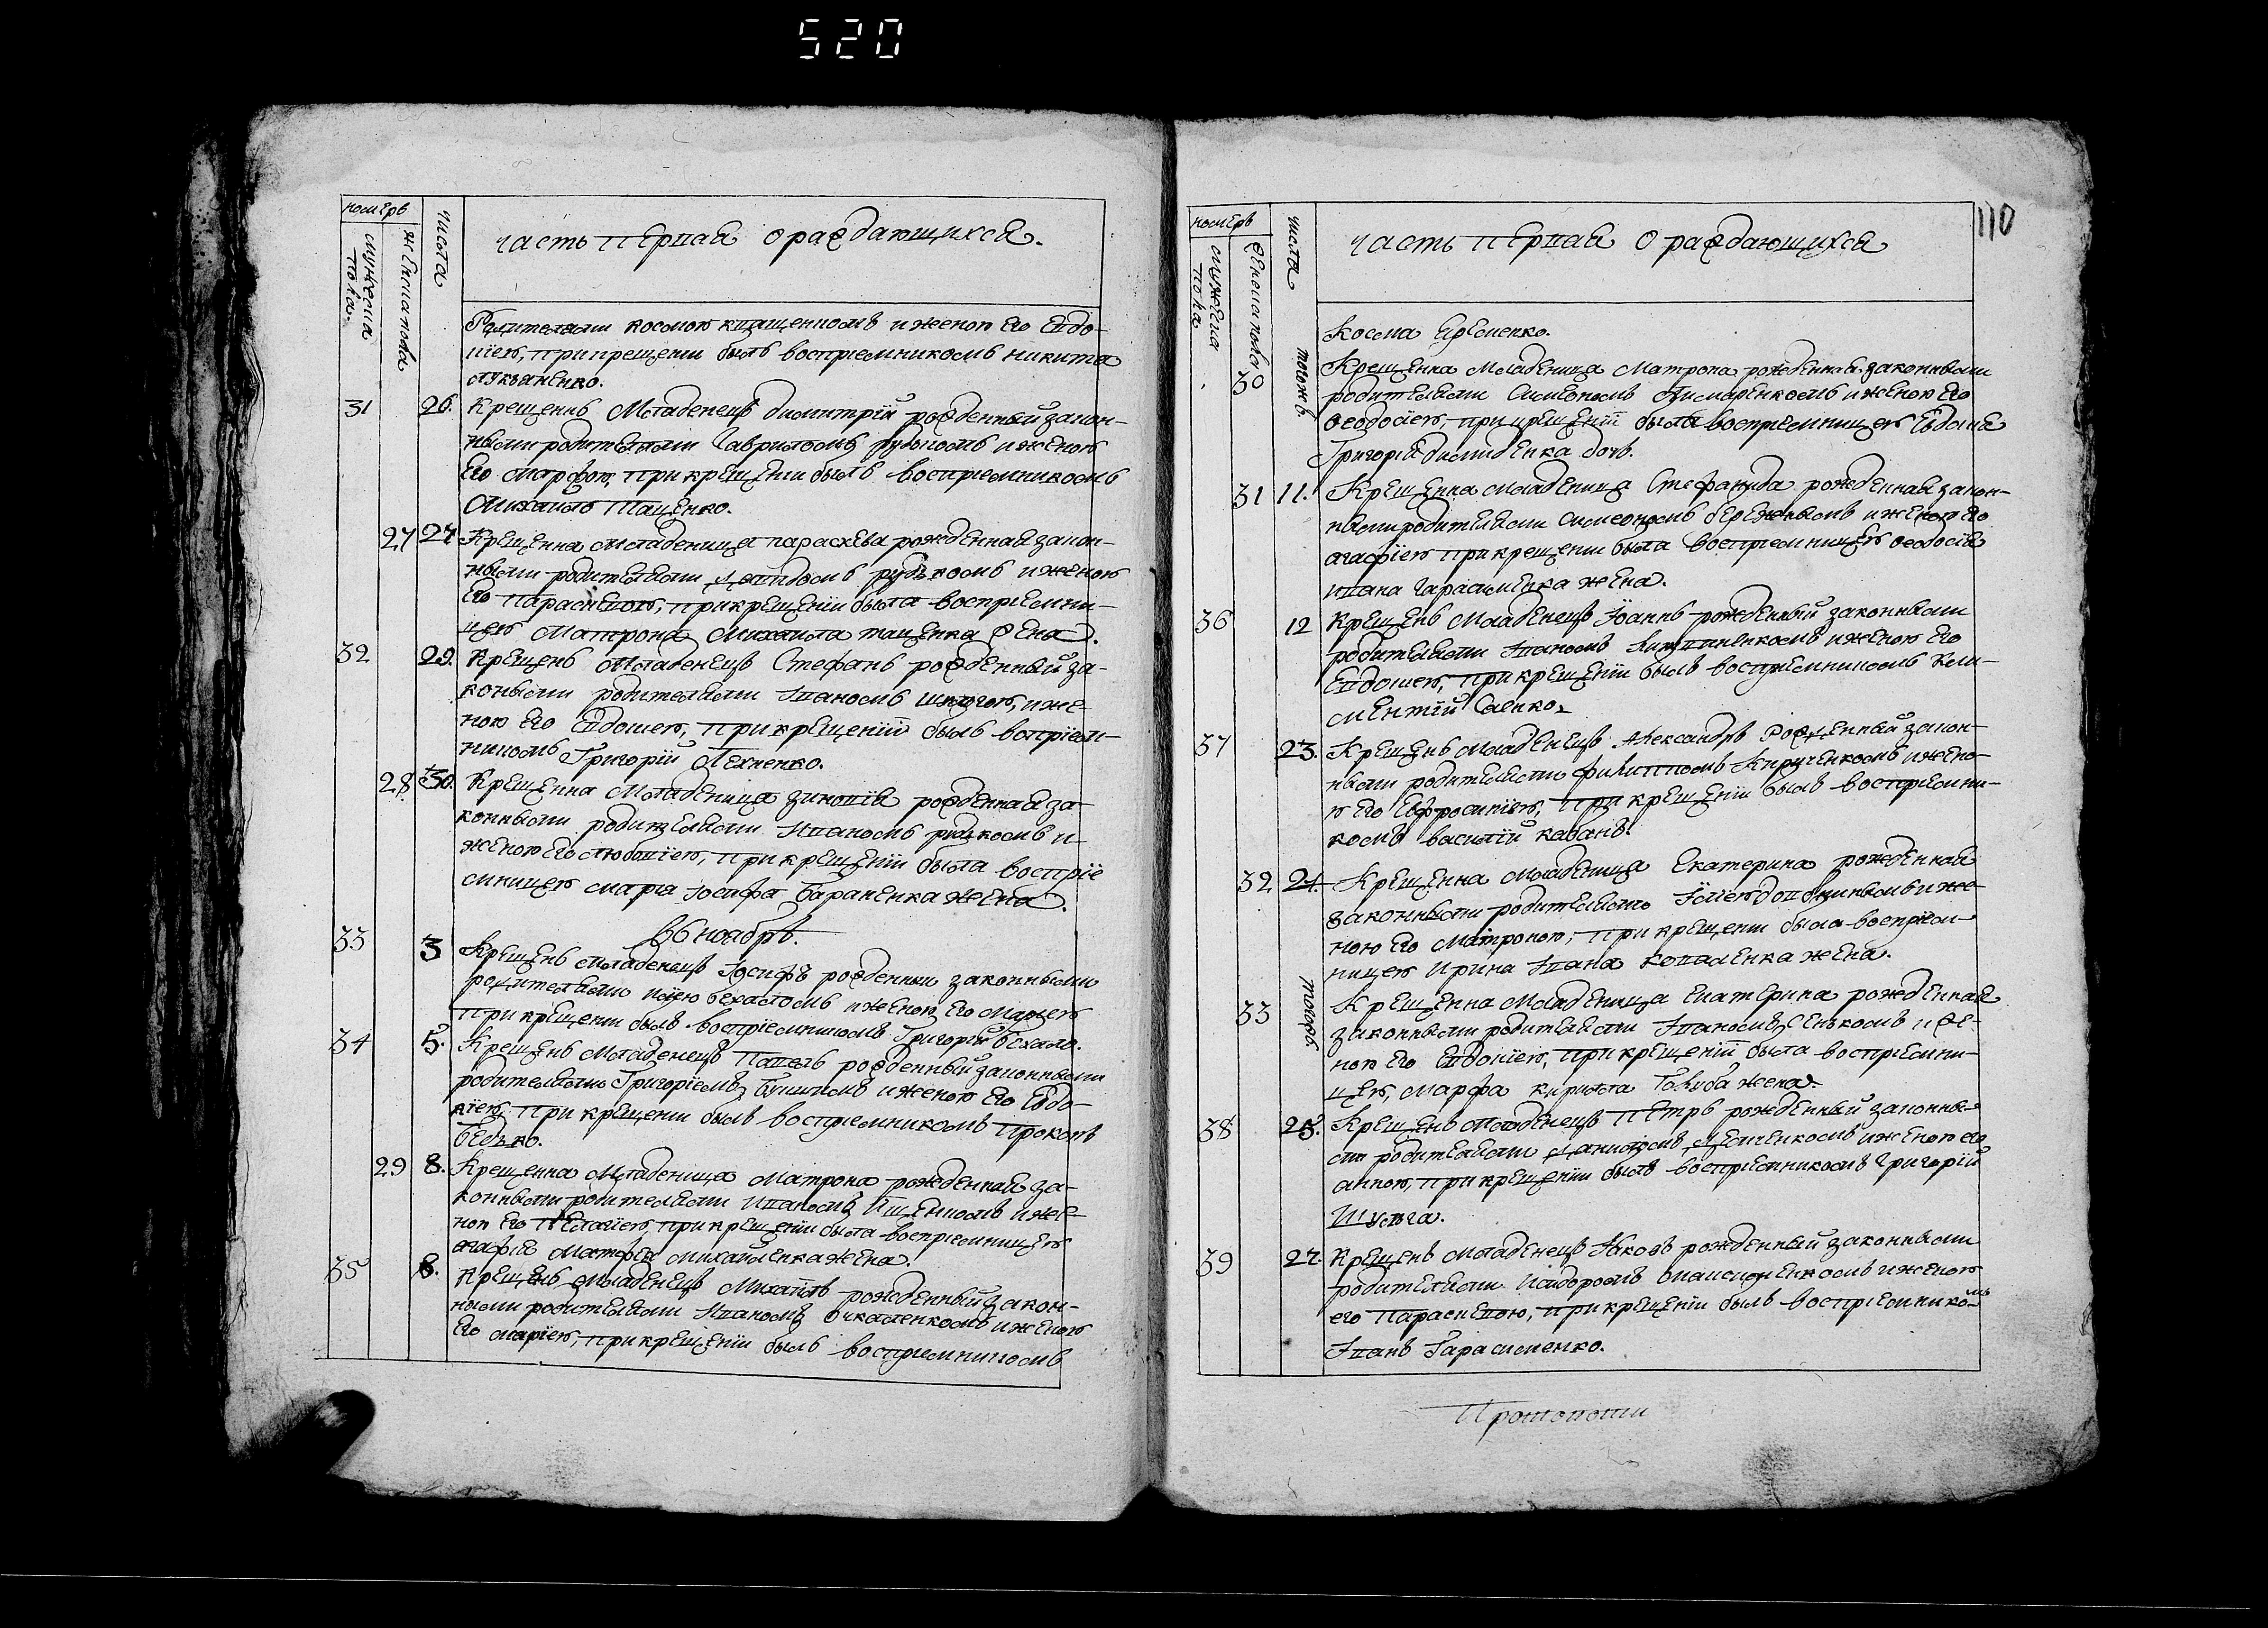 520
номеръ
мужеска пола.
женска пола
числа
часть первая о раждающихся.
родителями космою кващенкомъ и женою его Евдо-
кіею, при крещени былъ воспріемникомъ никита
лукъяненко.
31 26. крещенъ младенецъ димитрій рожденный закон-
ными родителями гавріиломъ и женою
его марфою, при крещени былъ воспріемникомъ
михаилъ Пащенко.
27 27 Крещенна младеница параскева рожденная закон-
ными родителями рудькомъ и женою
его Параскевою, при крещеніи была воспріемни-
цею Матрона Михаила пащенка жена.
32 29. Крещенъ младенецъ Стефанъ рожденный за-
конными родителями Іваномъ шкидчею, и же-
ною его Евдокиею, при крещеніи былъ воспріем-
никомъ Григорій Пехненко.
28 30. Крещенна младеница зиновія рожденная за-
конными родителями Иваномъ рудькомъ и
женою его любовіею, при крещеніи была воспріе-
мницею марія Іосифа Бараненка жена.
въ ноябрѣ.
33 3 Крещенъ младенецъ Іосифъ рожденный законными
родителями иліею бехаломъ и женою его Мариею
при крещени былъ воспріемникомъ Григорій бехало.
34 5. Крещенъ младенецъ Павелъ рожденный законными
родителями Григоріемъ и женою его Евдо-
кіею, при крещени былъ воспріемникомъ Прокопъ
бедъко.
29 8. Крещенна младеница матрона рожденная за-
конными родителями Иваномъ Ищенкомъ и же-
ною его Пелагіею, при крещеніи была воспріемницею
агафіе матфея михайленка жена.
35 8. Крещенъ младенецъ Михаилъ рожденный закон-
ными родителями Иваномъ очкаленкомъ и женою
его маріею, при крещеніи былъ воспріемникомъ
110
номеръ
мужеска пола
женска пола
числа
часть первая о раждающихся
косма Еременко.
30 тогожъ Крещенна младеница Матрона рожденная законными
родителями Симеономъ Писаренкомъ и женою его
ѳеодосіею, при крещеніи была воспріемницею Евдокія
Григорія димиденка дочь.
31 11. Крещенна младеница Стефанида рожденная закон-
ными родителями симеономъ бережнымъ и женою его
агафіею при крещени была воспріемницею ѳеодосія
ивана гарасименка жена.
36 12 Крещенъ младенецъ Іоаннъ рожденный законными
родителями Іваномъ и женою его
Евдокиею, при крещеніи былъ воспріемникомъ Кли-
ментій Саенко.
37 23. Крещенъ младенецъ Александръ рожденный закон-
ными родителями филиппомъ Кириченкомъ и жено-
ю его Ефросиніею, при крещеніи былъ воспріемни-
комъ василій кабанъ.
32 24. Крещенна младеница Екатерина рожденная
законными родителями Іліею и же-
ною его Матроною, при крещени была воспріем-
ницею Ирина Івана коваленка жена.
33 тогожъ Крещенна младеница Екатерина рожденная
законными родителями Іваномъ Сенькомъ и же-
ною его Евдокіею, при крещеніи была воспріемни-
цею, марфа кирилла Голуба жена.
38 25. Крещенъ младенецъ Петръ рожденный законны-
ми родителями даниломъ демченкомъ и женою его
анною, при крещеніи былъ воспріемникомъ григорій
Шульга.
39 27. Крещенъ младенецъ Яковъ рожденный законными
родителями исидоромъ Онисименкомъ и женою
его Параскевою, при крещеніи былъ воспріемникомъ
Іванъ Гарасименко.